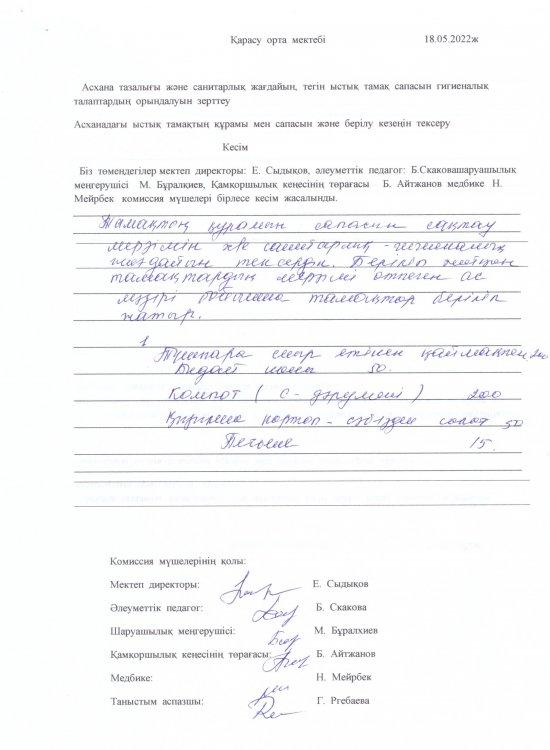 Қарасу орта мектебі 18.05.2022ж
Асхана тазалығы және санитарлық жағдайын, тегін ыстық тамақ сапасын гигиеналық
талаптардың орындалуын зерттеу
Асханадағы ыстық тамақтың құрамы мен сапасын және берілу кезеңін тексеру
Кесім
Біз төмендегілер мектеп директоры: Е. Сыдықов, әлеуметтік педагог: Б.Скаковашаруашылық
меңгерушісі М. Бұралқиев, Қамқоршылық кеңесінің төрағасы Б. Айтжанов медбике Н.
Мейрбек комиссия мүшелері бірлесе кесім жасалынды.
Тамақтың құрамын сапасын сақтау
мерзімін және санитарлық - гигиеналық
жағдайын тексердік. Беріліп жатқан
тамақтардың мерзімі өтпеген ас
мәзірі бойынша тамақтар беріліп
жатыр.
1
Тушпара сиыр етінен қаймақпен 200
Бидай наны 50.
Компот ( С - дәрумені ) 200
картоп - сәбізден салат 50
Печенье 15.
Комиссия мүшелерінің қолы:
Мектеп директоры: Е. Сыдықов
Әлеуметтік педагог: Б. Скакова
Шаруашылық меңгерушісі: М. Бұралхиев
Қамқоршылық кеңесінің төрағасы: Б. Айтжанов
Медбике: Н. Мейрбек
Таныстым аспазшы: Г. Ргебаева